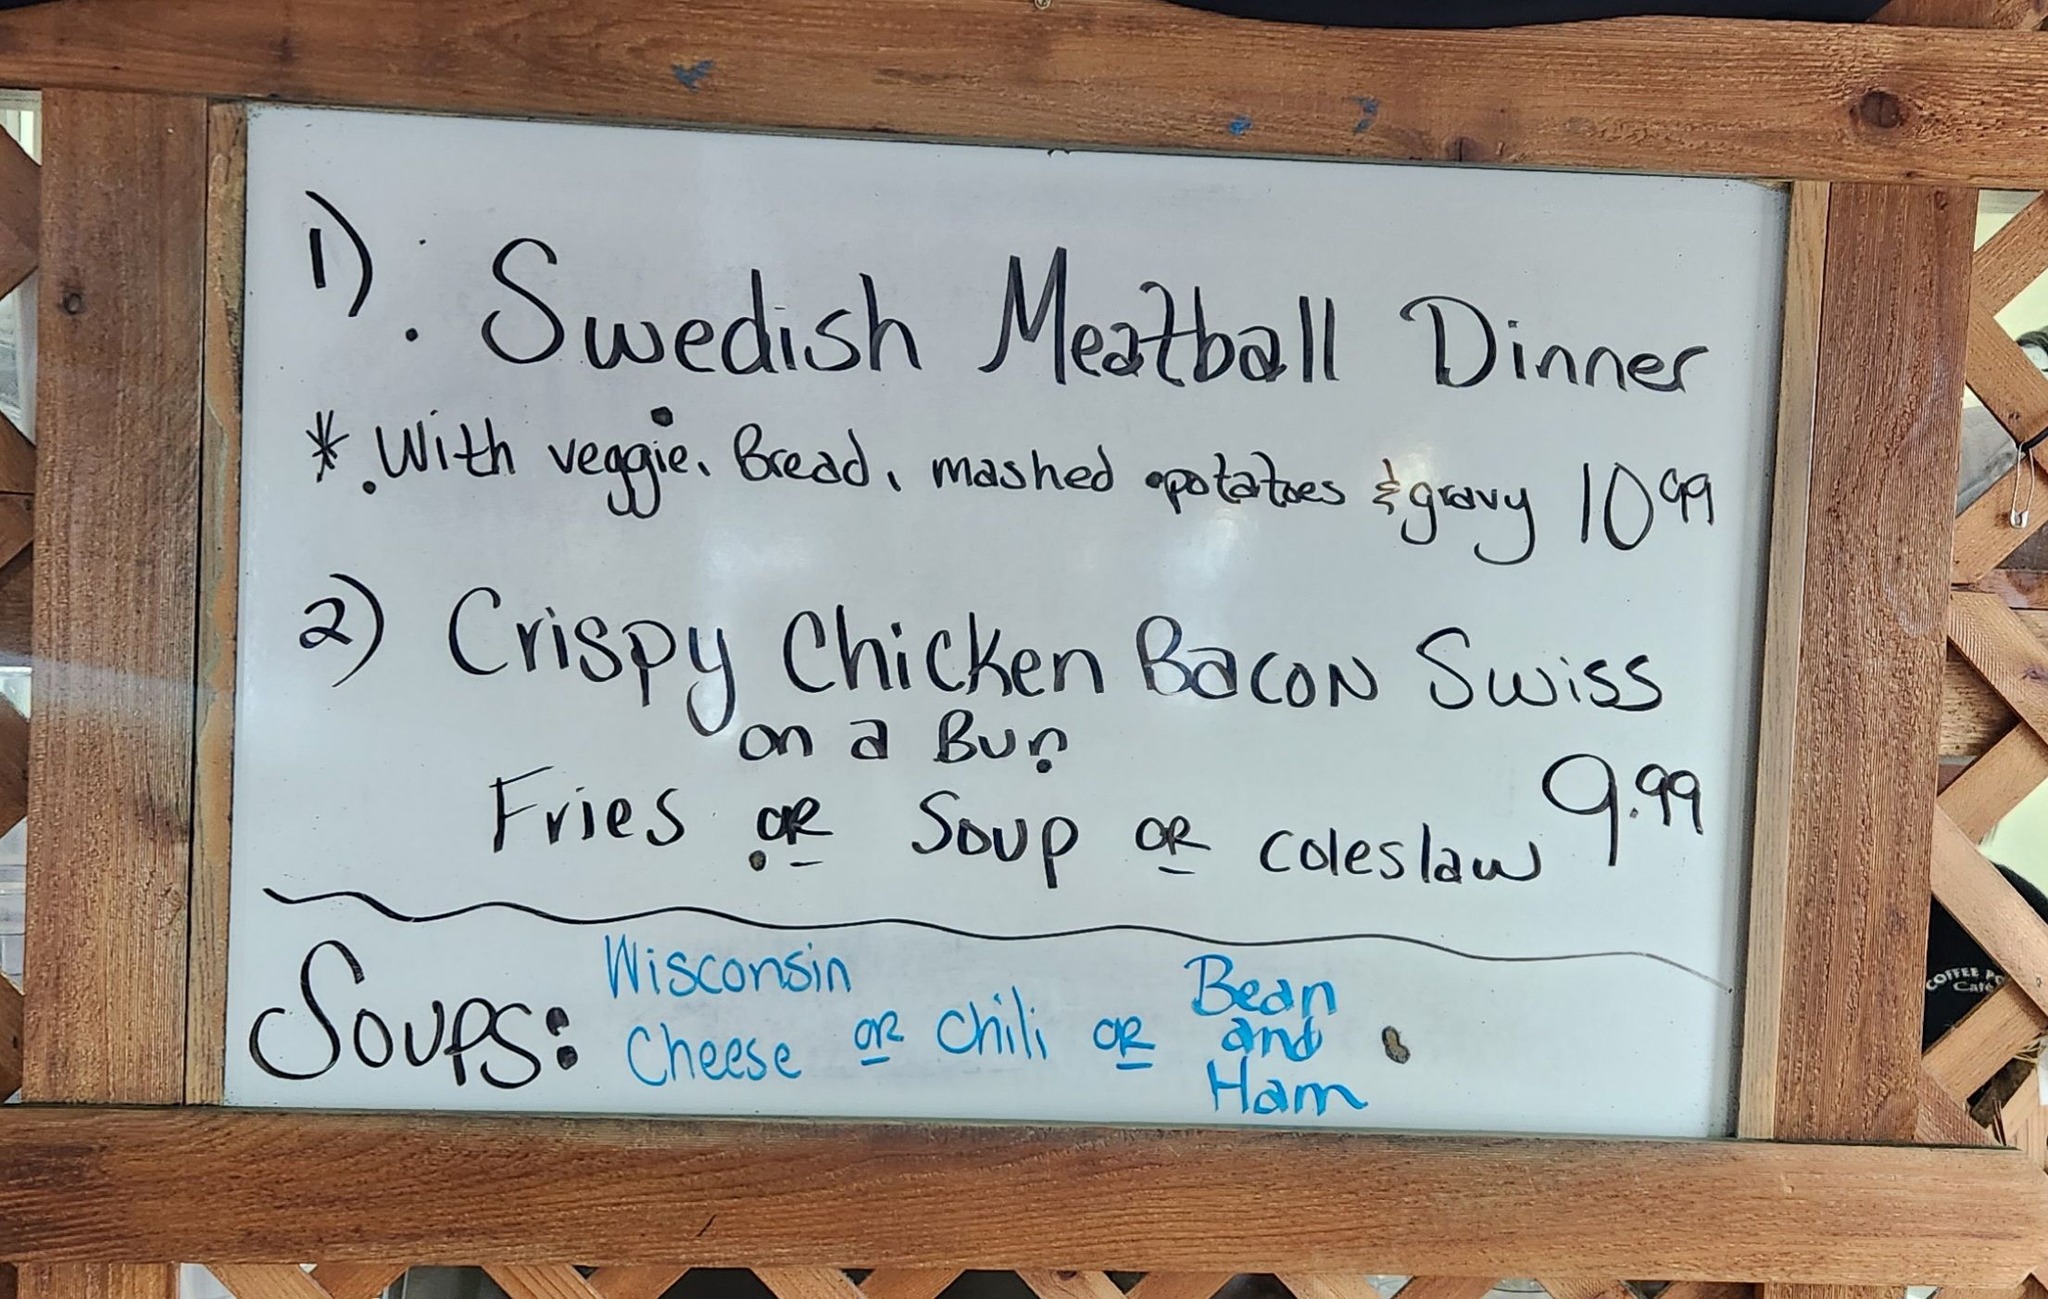 1). Swedish Meatball Dinner
* With veggie, Bread, mashed potatoes & gravy 10 99
2) Crispy Chicken Bacon Swiss
on a Bun
Fries OR Soup OR coleslaw 9.99
Soups: Wisconsin Cheese OR Chili OR Bean and Ham
COFFEE
Café